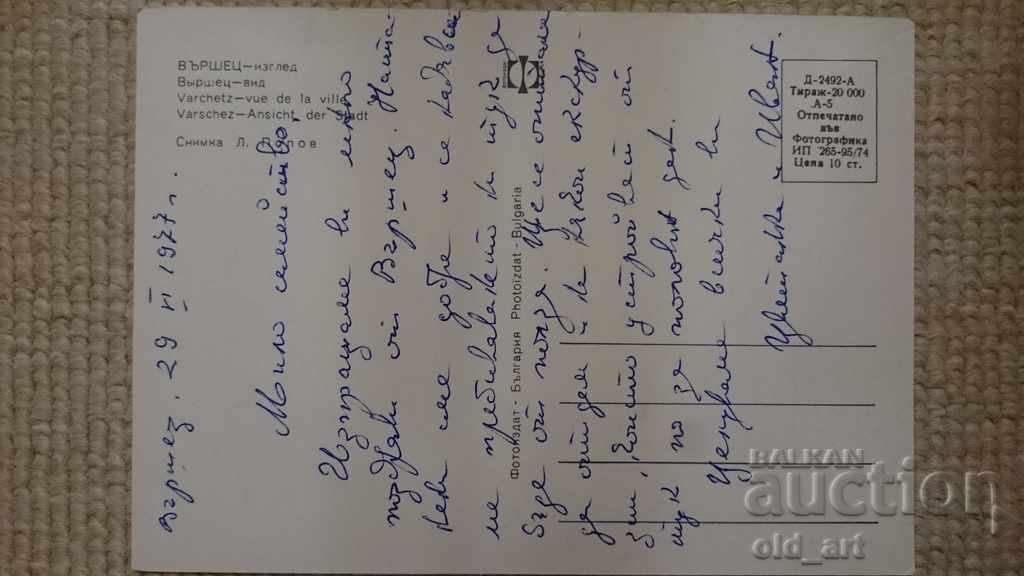 ВЪРШЕЦ—изглед
Выршец—вид
Varchetz—vue de la ville
Varschez—Ansicht der Stadt
Снимка Л.
Д-2492-А
Тираж-20 000
А-5
Отпечатано
във
Фотографика
ИП 265-95/74
Цена 10 ст.
Фотоиздат - България Photoizdat - Bulgaria
Вършец. 29 VI 1977 г.
Мило семейство,
Изпращаме ви много
поздрави от Вършец.
ме добре и се надяваме
пребиваването ни тук да
бъде от полза. Ще се опитаме
да отидем и на някоя екскур-
зия, които устройват от
тук по за половин ден.
Целуваме всички ви
Цветанка и Иван.
BALKAN
auction
old_art